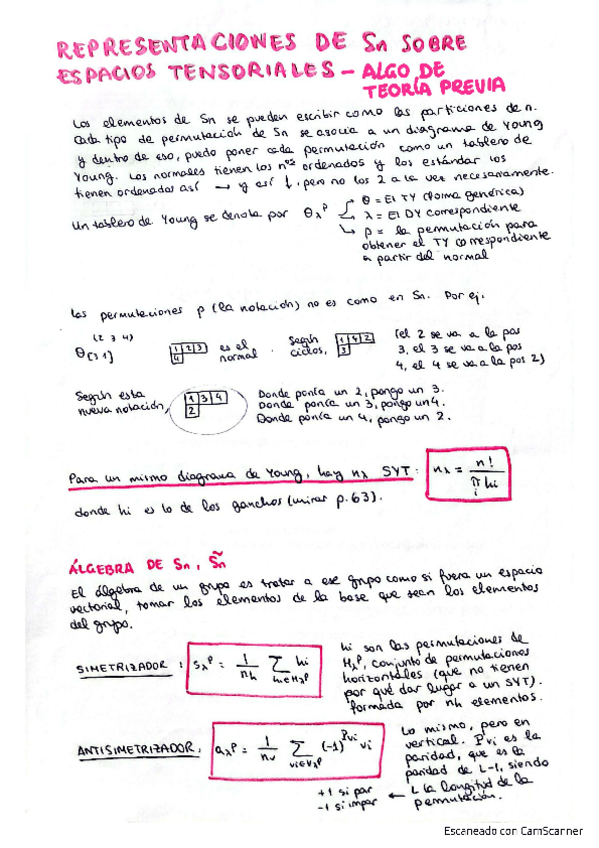 REPRESENTACIONES DE Sn SOBRE
ESPACIOS TENSORIALES - ALGO DE
TEORÍA PREVIA
Los elementos de Sn se pueden escribir como las particiones de n.
Cada tipo de permutación de Sn se asocia a un diagrama de Young
y dentro de eso, puedo poner cada permutación como un tablero de
Young. Los normales tienen los nos ordenados y los estándar los
tienen ordenados así → y así ↓, pero no los 2 a la vez necesariamente.
Un tablero de Young se denota por θλᵖ
θ = El TY (forma genérica)
λ = El DY correspondiente
p = la permutación para
obtener el TY correspondiente
a partir del normal
Las permutaciones p (la notación) no es como en Sn. Por ej,
θ[31](234)
1 2 3
4
es el
normal.
Según
ciclos,
1 4 2
3
(el 2 se va a la pos
3, el 3 se va a la pos
4, el 4 se va a la pos 2)
Según esta
nueva notación,
1 3 4
2
Donde ponía un 2, pongo un 3.
Donde ponía un 3, pongo un 4.
Donde ponía un 4, pongo un 2.
Para un mismo diagrama de Young, hay nλ SYT: nλ = n! / π hi
i
donde hi es lo de los ganchos (mirar p. 63).
ÁLGEBRA DE Sn, S̃n
El álgebra de un grupo es tratar a ese grupo como si fuera un espacio
vectorial, tomar los elementos de la base que sean los elementos
del grupo.
SIMETRIZADOR: sλᵖ = 1/nh Σ hi
hi∈Hλᵖ
hi son las permutaciones de
Hλᵖ, conjunto de permutaciones
horizontales (que no tienen
por qué dar lugar a un SYT).
formada por nh elementos.
ANTISIMETRIZADOR: aλᵖ = 1/nv Σ (-1)^Pvi vi
vi∈Vλᵖ
Lo mismo, pero en
vertical. Pvi es la
paridad, que es la
paridad de L-1, siendo
L la longitud de la
permutación.
+1 si par
-1 si impar
Escaneado con CamScanner